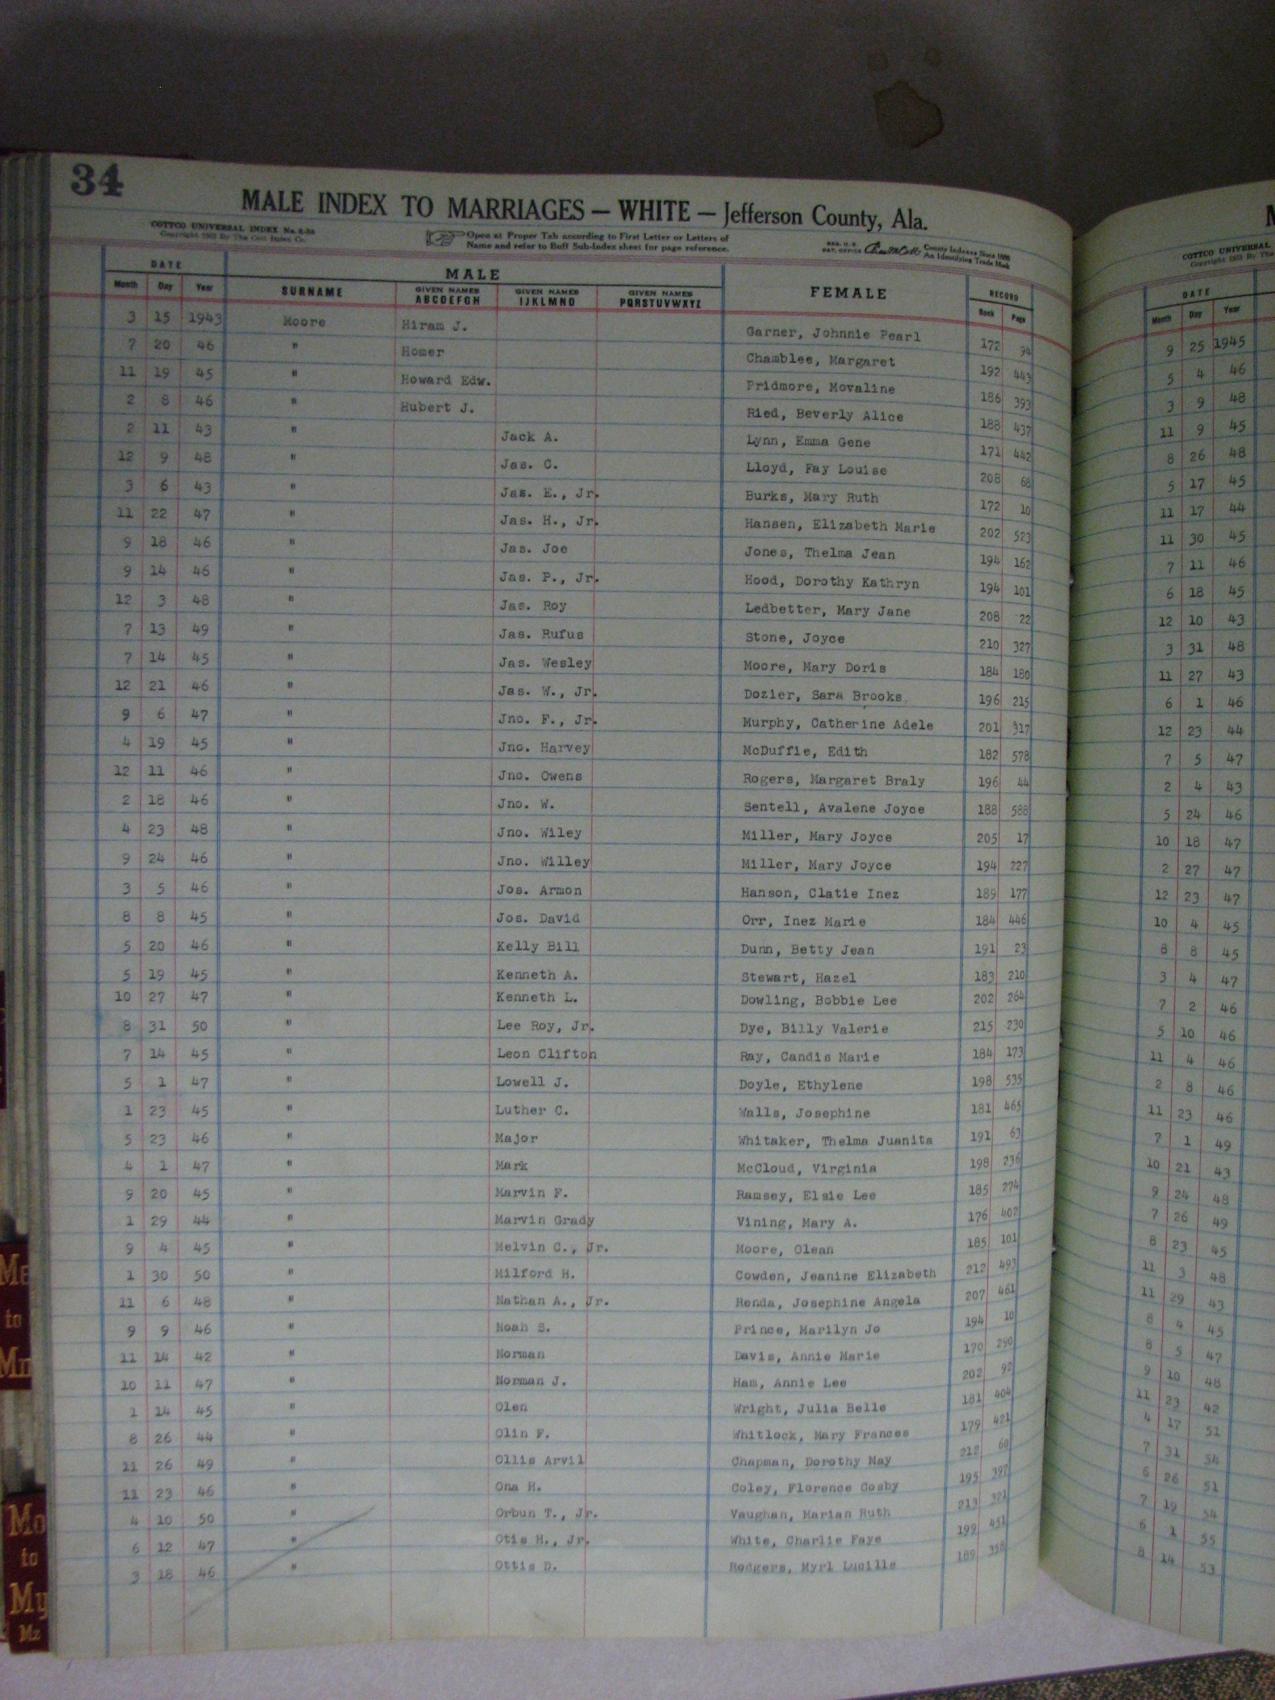 34
MALE INDEX TO MARRIAGES — WHITE — Jefferson County, Ala.
COTTCO UNIVERSAL INDEX No.
Open at Proper Tab according to First Letter or Letters of
Name and refer to Buff Sub-Index sheet for page reference.
County Indexes Since 1888
An Identifying Trade Mark
DATE MALE FEMALE RECORD
Month Day Year SURNAME GIVEN NAMES ABCDEFGH GIVEN NAMES IJKLMNO GIVEN NAMES PQRSTUVWXYZ Book Page
3 15 1943 Moore Hiram J. Garner, Johnnie Pearl 172 94
7 20 46 " Homer Chamblee, Margaret 192 443
11 19 45 " Howard Edw. Pridmore, Movaline 186 393
2 8 46 " Hubert J. Ried, Beverly Alice 188 437
2 11 43 " Jack A. Lynn, Emma Gene 171 442
12 9 48 " Jas. C. Lloyd, Fay Louise 208 68
3 6 43 " Jas. E., Jr. Burks, Mary Ruth 172 10
11 22 47 " Jas. H., Jr. Hansen, Elizabeth Marie 202 523
9 18 46 " Jas. Joe Jones, Thelma Jean 194 162
9 14 46 " Jas. P., Jr. Hood, Dorothy Kathryn 194 101
12 3 48 " Jas. Roy Ledbetter, Mary Jane 208 22
7 13 49 " Jas. Rufus Stone, Joyce 210 327
7 14 45 " Jas. Wesley Moore, Mary Doris 184 180
12 21 46 " Jas. W., Jr. Dozier, Sara Brooks 196 215
9 6 47 " Jno. F., Jr. Murphy, Catherine Adele 201 317
4 19 45 " Jno. Harvey McDuffie, Edith 182 578
12 11 46 " Jno. Owens Rogers, Margaret Braly 196 44
2 18 46 " Jno. W. Sentell, Avalene Joyce 188 588
4 23 48 " Jno. Wiley Miller, Mary Joyce 205 17
9 24 46 " Jno. Willey Miller, Mary Joyce 194 227
3 5 46 " Jos. Armon Hanson, Clatie Inez 189 177
8 8 45 " Jos. David Orr, Inez Marie 184 446
5 20 46 " Kelly Bill Dunn, Betty Jean 191 23
5 19 45 " Kenneth A. Stewart, Hazel 183 210
10 27 47 " Kenneth L. Dowling, Bobbie Lee 202 264
8 31 50 " Lee Roy, Jr. Dye, Billy Valerie 215 230
7 14 45 " Leon Clifton Ray, Candis Marie 184 173
5 1 47 " Lowell J. Doyle, Ethylene 198 535
1 23 45 " Luther C. Walls, Josephine 181 465
5 23 46 " Major Whitaker, Thelma Juanita 191 63
4 1 47 " Mark McCloud, Virginia 198 236
9 20 45 " Marvin F. Ramsey, Elsie Lee 185 274
1 29 44 " Marvin Grady Vining, Mary A. 176 407
9 4 45 " Melvin C., Jr. Moore, Olean 185 101
1 30 50 " Milford H. Cowden, Jeanine Elizabeth 212 493
11 6 48 " Nathan A., Jr. Renda, Josephine Angela 207 461
9 9 46 " Noah S. Prince, Marilyn Jo 194 10
11 14 42 " Norman Davis, Annie Marie 170 290
10 11 47 " Norman J. Ham, Annie Lee 202 92
1 14 45 " Olen Wright, Julia Belle 181 404
8 26 44 " Olin F. Whitlock, Mary Frances 179 421
11 26 49 " Ollis Arvil Chapman, Dorothy May 212 60
11 23 46 " Ona H. Coley, Florence Cosby 195 397
4 10 50 " Orbun T., Jr. Vaughan, Marian Ruth 213 321
6 12 47 " Otis H., Jr. White, Charlie Faye 199 451
3 18 46 " Ottis D. Rodgers, Myrl Lucille 189 358
Mo
to
My
Mz
to
COTTCO UNIVERSAL
DATE
Month Day Year
9 25 1945
5 4 46
3 9 48
11 9 45
8 26 48
5 17 45
11 17 44
11 30 45
7 11 46
6 18 45
12 10 43
3 31 48
11 27 43
6 1 46
12 23 44
7 5 47
2 4 43
5 24 46
10 18 47
2 27 47
12 23 47
10 4 45
8 8 45
3 4 47
7 2 46
5 10 46
11 4 46
2 8 46
11 23 46
7 1 49
10 21 43
9 24 48
7 26 49
8 23 45
11 3 48
11 29 43
8 4 45
8 5 47
9 10 48
11 23 42
4 17 51
7 31 54
6 26 51
7 19 54
6 1 55
8 14 53